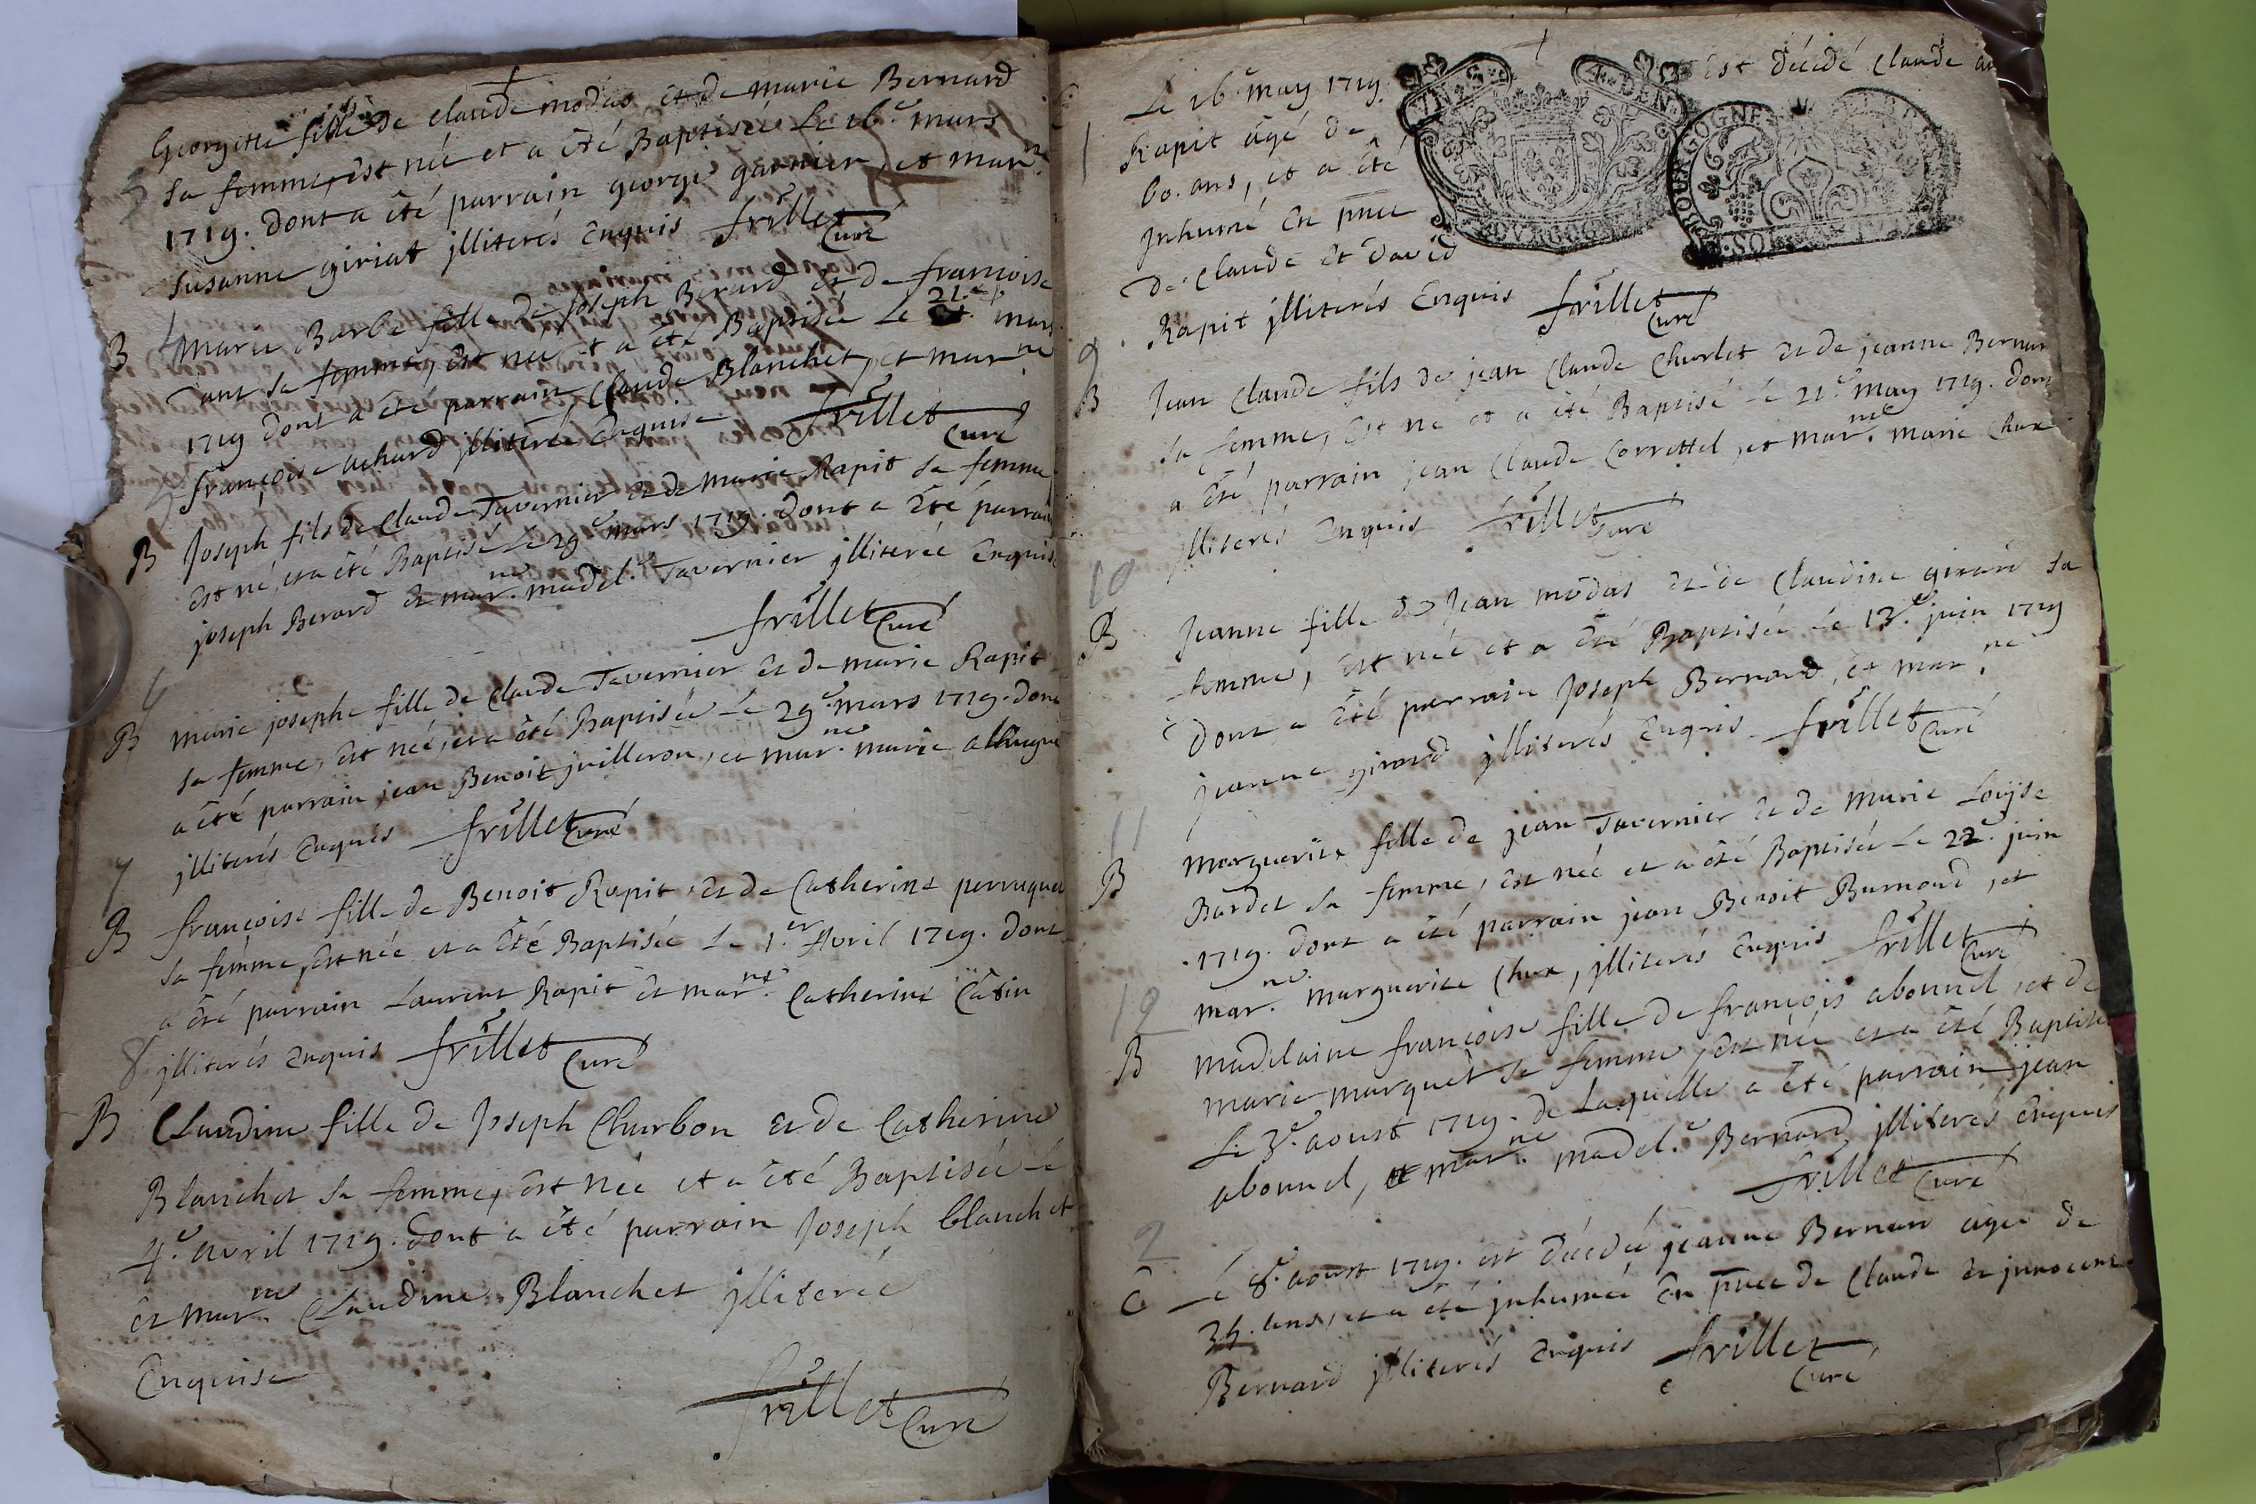 Georgette fille de claude modas et de marie Bernard
3 sa femme, est née et a été Baptisée Le 16.e mars
1719. dont a été parrain george garnier, et mar.ne
susanne giriat jlliterés enquis frillet
Curé
4
B marie Barbe fille de joseph Berard et de francoise
sa femme, est née et a été Baptisée Le 21.e mars
1719 dont a été parrain Claude Blanchet, et mar.ne
françoise achard jlliterée enquise frillet
Curé
5
B Joseph fils de Claude Tavernier et de marie Rapit sa femme
est né, et a été Baptisé Le 29.e mars 1719. dont a été parrain
joseph Berard et mar.ne madel.e Tavernier jlliterée enquise
frillet Curé
6
B marie josephe fille de Claude Tavernier et de marie Rapit
sa femme, est née, et a été Baptisée Le 29.e mars 1719. dont
a été parrain jean Benoit juilleron, et mar.ne marie
jlliterés enquis frillet Curé
7
B françoise fille de Benoit Rapit, et de Catherine perruquet
sa femme, est née et a été Baptisée Le 1.er Avril 1719. dont
a été parrain Laurent Rapit et mar.ne Catherine Catin
8 jlliterés enquis frillet Curé
B Claudine fille de Joseph Charbon et de Catherine
Blanchet sa femme, est née et a été Baptisée Le
4.e avril 1719. dont a été parrain Joseph blanchet
et mar.ne Claudine Blanchet jlliterée
Enquise
frillet Curé
C Le 16.e may 1719. est décédé Claude
1 Rapit âgé de
60. ans, et a été
jnhumé en pnce
de Claude et David
Rapit jlliterés Enquis frillet
Curé
BOURGOGNE
9
B Jean Claude fils de jean Claude Charlet et de jeanne Bernar
sa femme, est né et a été Baptisé Le 21.e may 1719. dont
a été parrain jean Claude Correttel, et mar.ne marie Chux
jlliterés enquis frillet Curé
10
B Jeanne fille de Jean modas et de Claudine girard sa
femme, est née et a été Baptisée Le 13.e juin 1719
Dont a été parrain Joseph Bernard, et mar.ne
jeanne girard jlliterés enquis frillet Curé
11
B Marguerite fille de jean Tavernier et de Marie Louÿse
Bardet sa femme, est née et a été Baptisée Le 22.e juin
1719. dont a été parrain jean Benoit Burnoud, et
mar.ne Marguerite Chux, jlliterés enquis frillet
Curé
12
B Madelaine françoise fille de françois abonnel, et de
marie marquet sa femme, est née et a été Baptisée
Le 3.e aoust 1719. de Laquelle a été parrain jean
abonnel, et mar.ne madel.e Bernard, jlliterés enquis
frillet Curé
2
C Le 8.e aoust 1719. est décédée jeanne Bernard agée de
35. ans, et a été jnhumée en pnce de Claude et jnnocent
Bernard jlliterés enquis frillet
Curé